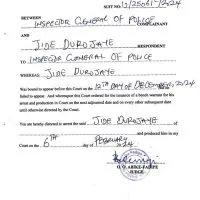 SUIT NO. 13/25061/2024
BETWEEN
INSPECTOR GENERAL OF POLICE
COMPLAINANT
AND
JIDE DUROJAYE
RESPONDENT
TO INSPECTOR GENERAL OF POLICE
WHEREAS JIDE DUROJAYE
Was bound to appear before this Court on the 12TH DAY OF DECEMBER, 2024
failed to appear. And whereupon this Court ordered for the issuance of a bench warrant for his
arrest and production in Court on the next adjourned date and on every other subsequent date
until otherwise directed by the Court.
You are hereby directed to arrest the said JIDE DUROJAYE of
and produced him in my
Court on the 6TH day of FEBRUARY 20
JUDGE